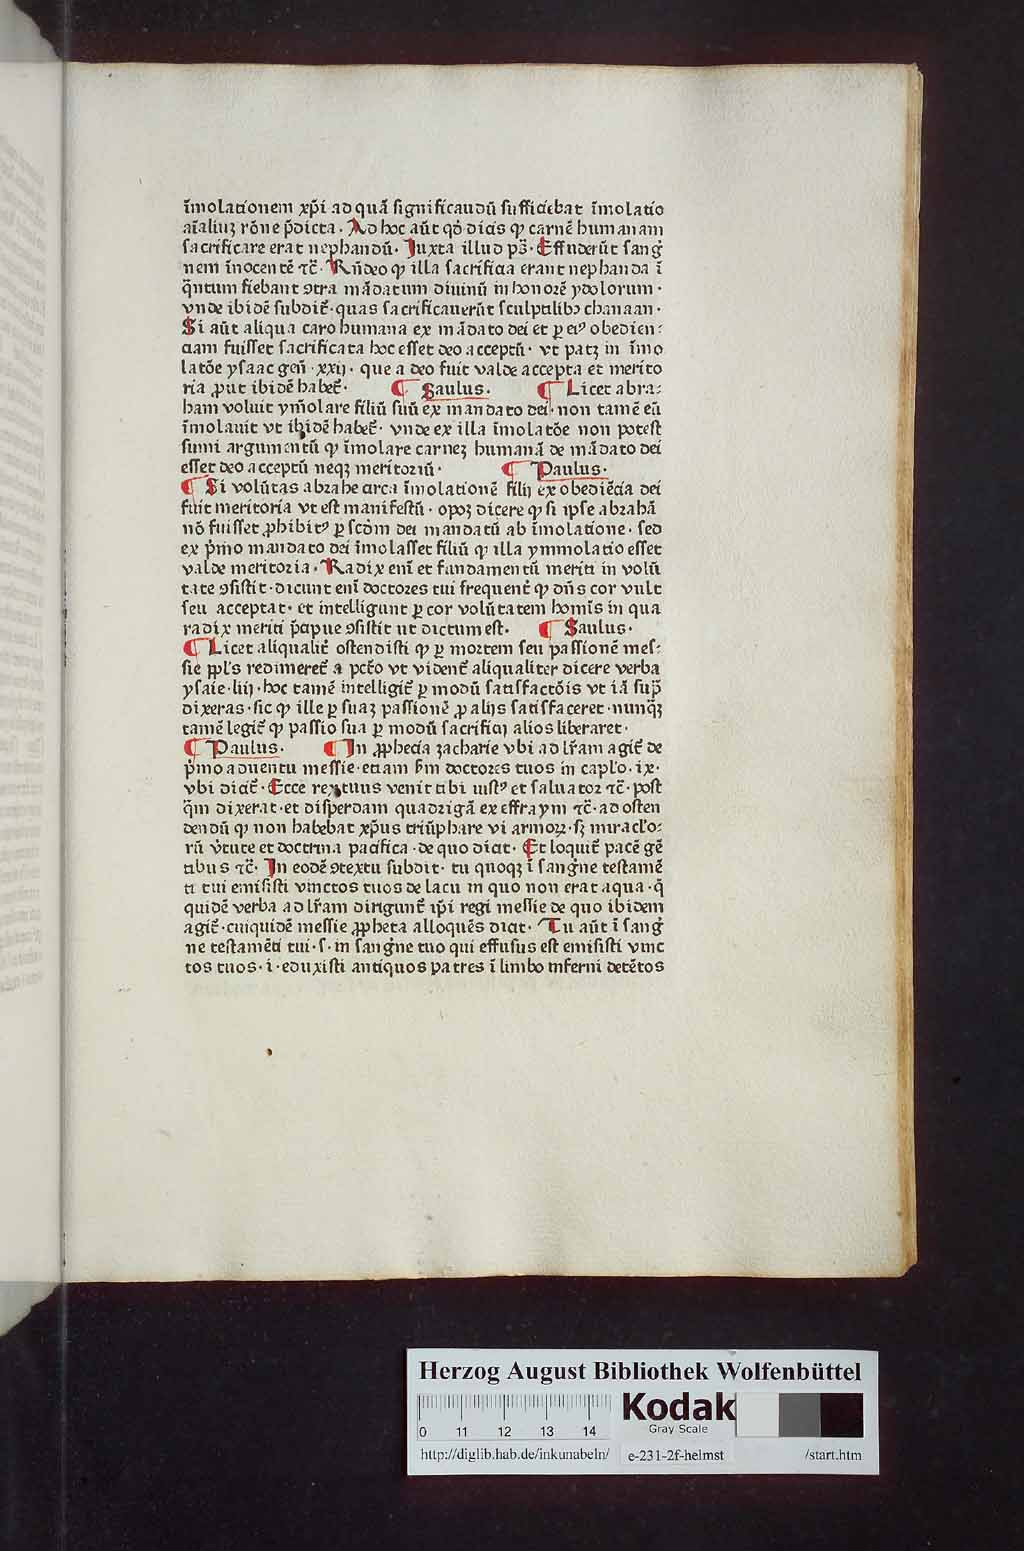 īmolationem xp̄i ad quā significandū sufficiebat īmolatio
aīaliuꝫ rōne p̄dicta. Ad hoc aūt qđ dicis ꝙ carnē humanam
sacrificare erat nephandū. Juxta illud ps̄. Effuderūt sangꝰ
nem īnocentē ⁊c̄. Rn̄deo ꝙ illa sacrificia erant nephanda ī
q̄ntum fiebant ꝯtra mādatum diuinū in honorē ydolorum.
vnde ibidē subdit̄. quas sacrificauerūt sculptilibꝫ chanaan.
Si aūt aliqua caro humana ex mādato dei et ꝑ eiꝰ obedien:
ciam fuisset sacrificata hoc esset deo acceptū. vt patꝫ in īmo
latōe ysaac gen̄. xxij. que a deo fuit valde accepta et merito
ria ꝓut ibidē habet̄. ¶ Saulus. ¶ Licet abra:
ham voluit ym̄olare filiū suū ex mandato dei. non tamē eū
īmolauit vt ibidē habet̄. vnde ex illa īmolatōe non potest
sumi argumentū ꝙ īmolare carneꝫ humanā de mādato dei
esset deo acceptū neqꝫ meritoriū. ¶ Paulus.
¶ Si volūtas abrahe circa īmolationē filij ex obediēcia dei
fuit meritoria vt est manifestū. opoꝫ dicere ꝙ si ipse abrahā
nō fuisset ꝓhibitꝰ ꝑ scd̄m dei mandatū ab īmolatione. sed
ex p̄mo mandato dei īmolasset filiū ꝙ illa ymmolatio esset
valde meritoria. Radix enī et fundamentū meriti in volū
tate ꝯsistit. dicunt enī doctores tui frequent̄ ꝙ dn̄s cor vult
seu acceptat. et intelligunt ꝑ cor volūtatem homīs in qua
radix meriti p̄cipue ꝯsistit ut dictum est. ¶ Saulus.
¶ Licet aliqualit̄ ostendisti ꝙ ꝑ mortem seu passionē mes:
sie ppl̄s redimeret̄ a pctō vt vident̄ aliqualiter dicere verba
ysaie. liij. hoc tamē intelligit̄ ꝑ modū satisfactōis vt iā sup̄
dixeras. sic ꝙ ille ꝑ suaꝫ passionē ꝓ alijs satisfaceret. nunqꝫ
tamē legit̄ ꝙ passio sua ꝑ modū sacrificij alios liberaret.
¶ Paulus. ¶ In ꝓphecia zacharie vbi ad lr̄am agit̄ de
p̄mo aduentu messie. etiam sm̄ doctores tuos in caplo. ix.
vbi dicit̄. Ecce rex tuus venit tibi iustꝰ et saluator ⁊c̄. post
q̄m dixerat. et disperdam quadrigā ex effraym ⁊c̄. ad osten
dendū ꝙ non habebat xp̄us triūphare vi armoꝝ. sꝫ miraclo:
rū v̄tute et doctrina pacifica. de quo dicit. Et loquit̄ pacē gē
tibus ⁊c̄. In eodē ꝯtextu subdit. tu quoqꝫ ī sangne testamē
ti tui emisisti vinctos tuos de lacu in quo non erat aqua. q̄
quidē verba ad lr̄am dirigunt̄ ip̄i regi messie de quo ibidem
agit̄. cuiquidē messie ꝓpheta alloquēs dicit. Tu aūt ī sangꝰ
ne testamēti tui. s. in sangne tuo qui effusus est emisisti vinc
tos tuos. i. eduxisti antiquos patres ī limbo inferni detētos
Herzog August Bibliothek Wolfenbüttel
0 11 12 13 14
Kodak
Gray Scale
http://diglib.hab.de/inkunabeln/ e-231-2f-helmst /start.htm